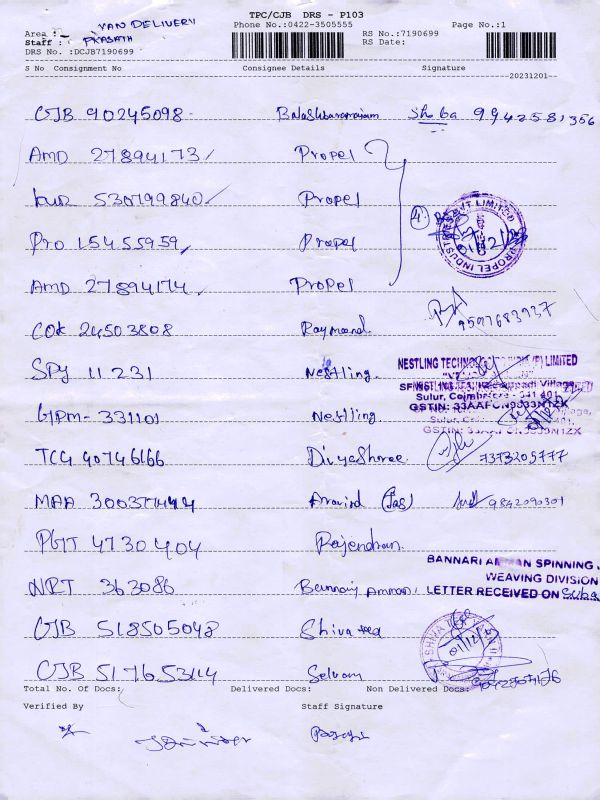 TPC/CJB DRS - P103
VAN DELIVERY
Phone No.:0422-3505555 Page No.:1
Area :-
Staff : PRASATH
RS No.:7190699
RS Date:
DRS No. :DCJB7190699
S No Consignment No Consignee Details Signature
20231201
CJB 90245098 Shoba
AMD 27894173 Propel
530799840 Propel
Pro 15455959 Propel
4
PROPEL INDUSTRIES PVT LIMITED
AMD 27894174 Propel
COK 24503808 Raymond
9597683937
SPY 11231 Nestling
NESTLING TECHNO (P) LIMITED
Sulur, Coimbatore - 641 401
GPM- 331101 Nestling
TCG 40746166 DivyaShree 7373205777
MAA Aravind (Jas) 9842090301
4730404 Rajendran
BANNARI AMMAN SPINNING
WEAVING DIVISION
NRT 363086 Bannari Amman LETTER RECEIVED ON
CJB 518505048 Shiva
01/12/23
CJB Selvam
Total No. Of Docs: Delivered Docs: Non Delivered Docs:
Verified By Staff Signature